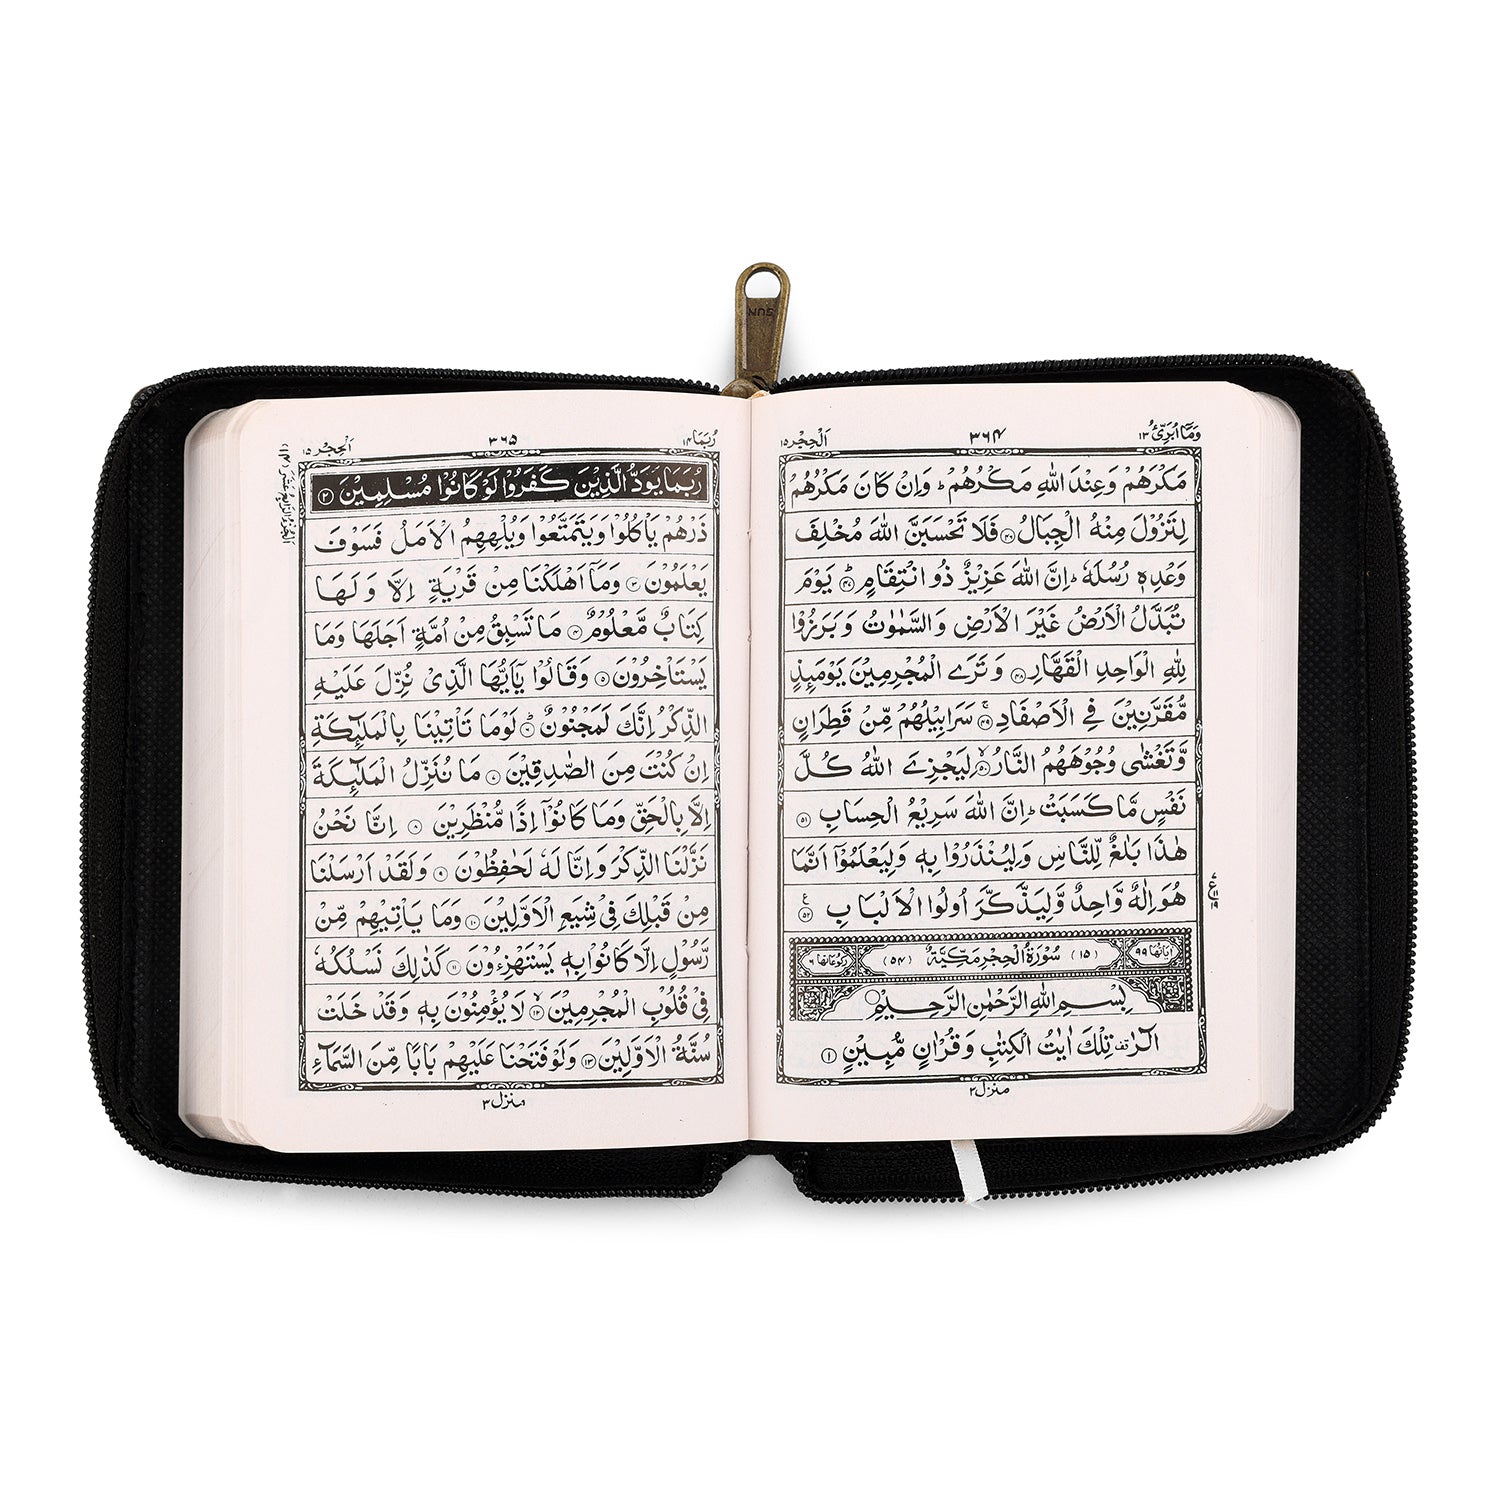 SUN
وَمَآ اُبَرِّئُ ١٣
٣٦٤
اَلْحِجْر ١٥
مَكْرَهُمْ وَعِنْدَ اللّٰهِ مَكْرُهُمْ ؕ وَاِنْ كَانَ مَكْرُهُمْ
لِتَزُوْلَ مِنْهُ الْجِبَالُ ﴿٤٦﴾ فَلَا تَحْسَبَنَّ اللّٰهَ مُخْلِفَ
وَعْدِهٖ رُسُلَهٗ ؕ اِنَّ اللّٰهَ عَزِيْزٌ ذُو انْتِقَامٍ ؕ ﴿٤٧﴾ يَوْمَ
تُبَدَّلُ الْاَرْضُ غَيْرَ الْاَرْضِ وَالسَّمٰوٰتُ وَبَرَزُوْا
لِلّٰهِ الْوَاحِدِ الْقَهَّارِ ﴿٤٨﴾ وَتَرَى الْمُجْرِمِيْنَ يَوْمَىِٕذٍ
مُّقَرَّنِيْنَ فِي الْاَصْفَادِ ۚ ﴿٤٩﴾ سَرَابِيْلُهُمْ مِّنْ قَطِرَانٍ
وَّتَغْشٰى وُجُوْهَهُمُ النَّارُ ۙ ﴿٥٠﴾ لِيَجْزِيَ اللّٰهُ كُلَّ
نَفْسٍ مَّا كَسَبَتْ ؕ اِنَّ اللّٰهَ سَرِيْعُ الْحِسَابِ ﴿٥١﴾
هٰذَا بَلٰغٌ لِّلنَّاسِ وَلِيُنْذَرُوْا بِهٖ وَلِيَعْلَمُوْٓا اَنَّمَا
هُوَ اِلٰهٌ وَّاحِدٌ وَّلِيَذَّكَّرَ اُولُوا الْاَلْبَابِ ﴿٥٢﴾ ع
ع ١١ ١٩
اٰيَاتُهَا ٩٩ (١٥) سُوْرَةُ الْحِجْرِ مَكِّيَّةٌ (٥٤) رُكُوْعَاتُهَا ٦
بِسْمِ اللّٰهِ الرَّحْمٰنِ الرَّحِيْمِ
الٓرٰ ۟ قف تِلْكَ اٰيٰتُ الْكِتٰبِ وَقُرْاٰنٍ مُّبِيْنٍ ﴿١﴾
منزل ٣
رُبَمَا ١٤
٣٦٥
اَلْحِجْر ١٥
رُبَمَا يَوَدُّ الَّذِيْنَ كَفَرُوْا لَوْ كَانُوْا مُسْلِمِيْنَ ﴿٢﴾
ذَرْهُمْ يَاْكُلُوْا وَيَتَمَتَّعُوْا وَيُلْهِهِمُ الْاَمَلُ فَسَوْفَ
يَعْلَمُوْنَ ﴿٣﴾ وَمَآ اَهْلَكْنَا مِنْ قَرْيَةٍ اِلَّا وَلَهَا
كِتَابٌ مَّعْلُوْمٌ ﴿٤﴾ مَا تَسْبِقُ مِنْ اُمَّةٍ اَجَلَهَا وَمَا
يَسْتَاْخِرُوْنَ ﴿٥﴾ وَقَالُوْا يٰٓاَيُّهَا الَّذِيْ نُزِّلَ عَلَيْهِ
الذِّكْرُ اِنَّكَ لَمَجْنُوْنٌ ؕ ﴿٦﴾ لَوْمَا تَاْتِيْنَا بِالْمَلٰٓىِٕكَةِ
اِنْ كُنْتَ مِنَ الصّٰدِقِيْنَ ﴿٧﴾ مَا نُنَزِّلُ الْمَلٰٓىِٕكَةَ
اِلَّا بِالْحَقِّ وَمَا كَانُوْٓا اِذًا مُّنْظَرِيْنَ ﴿٨﴾ اِنَّا نَحْنُ
نَزَّلْنَا الذِّكْرَ وَاِنَّا لَهٗ لَحٰفِظُوْنَ ﴿٩﴾ وَلَقَدْ اَرْسَلْنَا
مِنْ قَبْلِكَ فِيْ شِيَعِ الْاَوَّلِيْنَ ﴿١٠﴾ وَمَا يَاْتِيْهِمْ مِّنْ
رَّسُوْلٍ اِلَّا كَانُوْا بِهٖ يَسْتَهْزِءُوْنَ ﴿١١﴾ كَذٰلِكَ نَسْلُكُهٗ
فِيْ قُلُوْبِ الْمُجْرِمِيْنَ ۙ ﴿١٢﴾ لَا يُؤْمِنُوْنَ بِهٖ وَقَدْ خَلَتْ
سُنَّةُ الْاَوَّلِيْنَ ﴿١٣﴾ وَلَوْ فَتَحْنَا عَلَيْهِمْ بَابًا مِّنَ السَّمَآءِ
منزل ٣